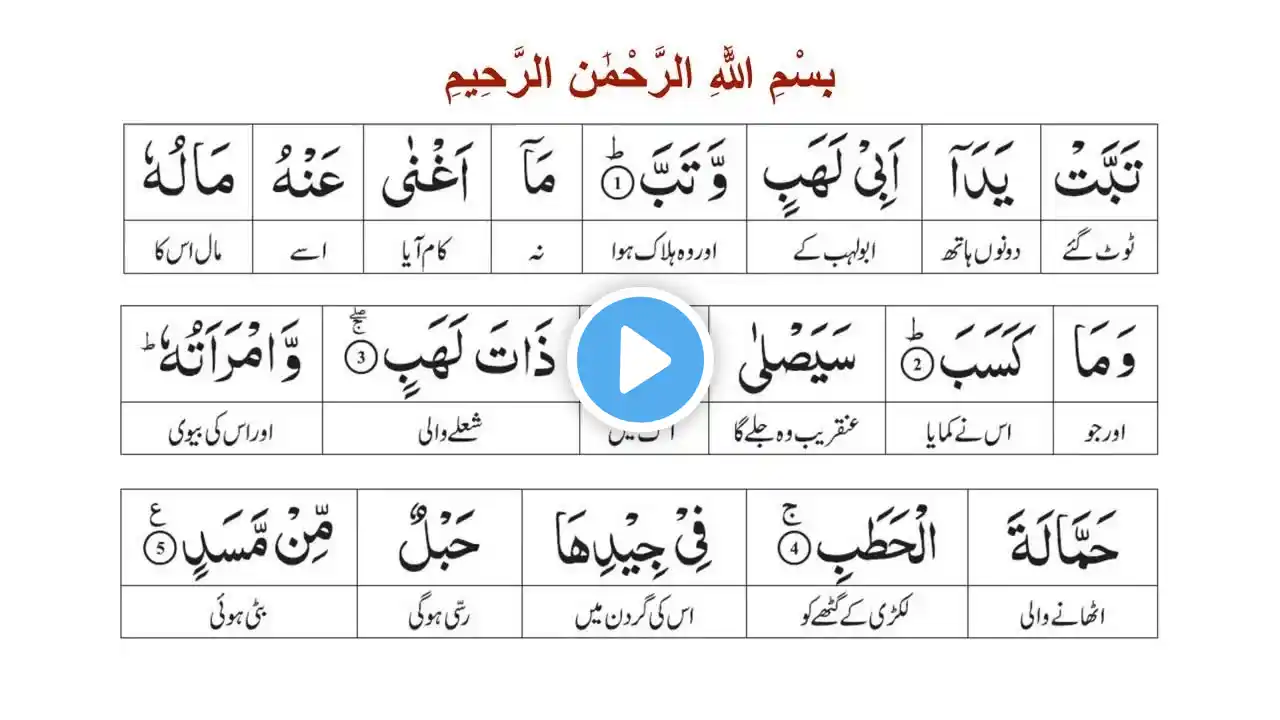 بِسْمِ اللّٰهِ الرَّحْمٰنِ الرَّحِيمِ
تَبَّتْ يَدَآ اَبِيْ لَهَبٍ وَّ تَبَّ ؕ 1 مَآ اَغْنٰى عَنْهُ مَا لُهٗ
ٹوٹ گئے دونوں ہاتھ ابولہب کے اور وہ ہلاک ہوا نہ کام آیا اسے مال اس کا
وَ مَا كَسَبَ ؕ 2 سَيَصْلٰى ذَاتَ لَهَبٍ ۖۚ 3 وَّ امْرَاَتُهٗ ؕ
اور جو اس نے کمایا عنقریب وہ جلے گا شعلے والی اور اس کی بیوی
حَمَّا لَةَ الْحَطَبِ ۚ 4 فِيْ جِيْدِهَا حَبْلٌ مِّنْ مَّسَدٍ ع 5
اٹھانے والی لکڑی کے گٹھے کو اس کی گردن میں رسّی ہوگی بٹی ہوئی